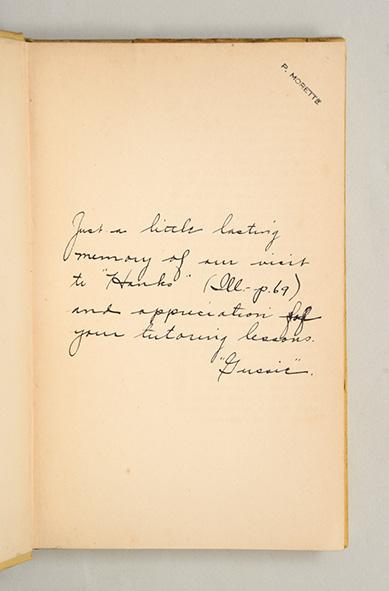 P. MORETTE
Just a little lasting
memory of our visit
to "Hanks" (Ill- p.69)
and appreciation for
your tutoring lessons.
"Gussie".